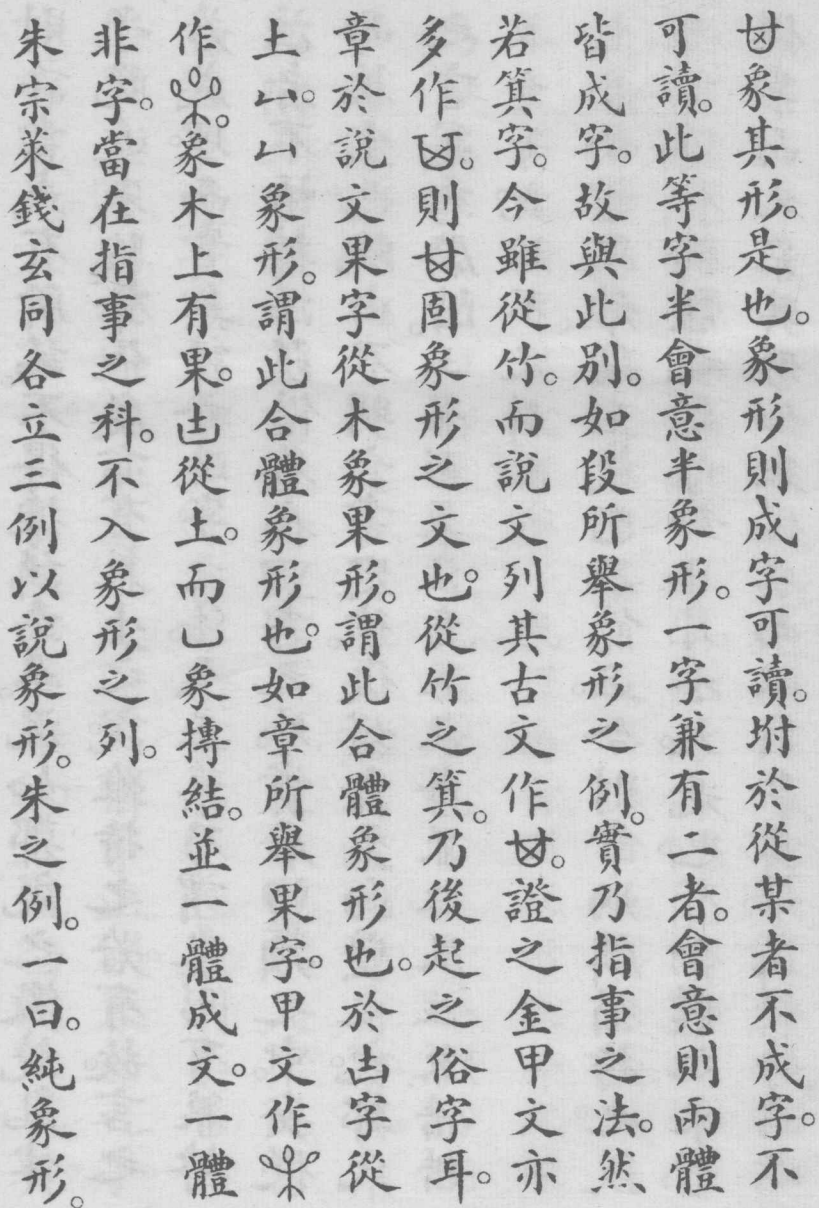 𠀠象其形。是也。象形則成字可讀。坿於從某者不成字。不
可讀。此等字半會意半象形。一字兼有二者。會意則兩體
皆成字。故與此別。如段所舉象形之例。實乃指事之法。然
若箕字。今雖從竹。而說文列其古文作𠀠。證之金甲文亦
多作。則𠀠固象形之文也。從竹之箕。乃後起之俗字耳。
章於說文果字從木象果形。謂此合體象形也。於𠙽字從
土凵。凵象形。謂此合體象形也。如章所舉果字。甲文作
作。象木上有果。𠙽從土。而凵象摶結。並一體成文。一體
非字。當在指事之科。不入象形之列。
朱宗萊錢玄同各立三例以說象形。朱之例。一曰。純象形。